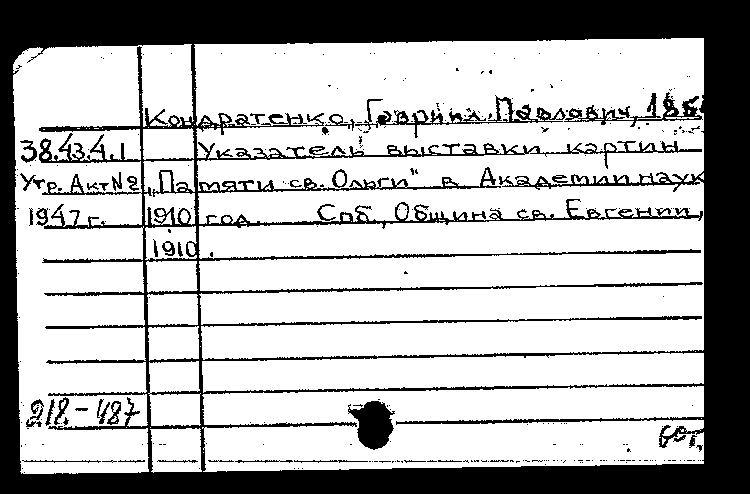 Кондратенко, Гавриил Павлович, 185
38.43.4.1 Указатель выставки картин
Утр. Акт №2 „Памяти св. Ольги" в Академии наук
1947 г. 1910 год. Спб, Община св. Евгении,
1910.
218-487
60т.